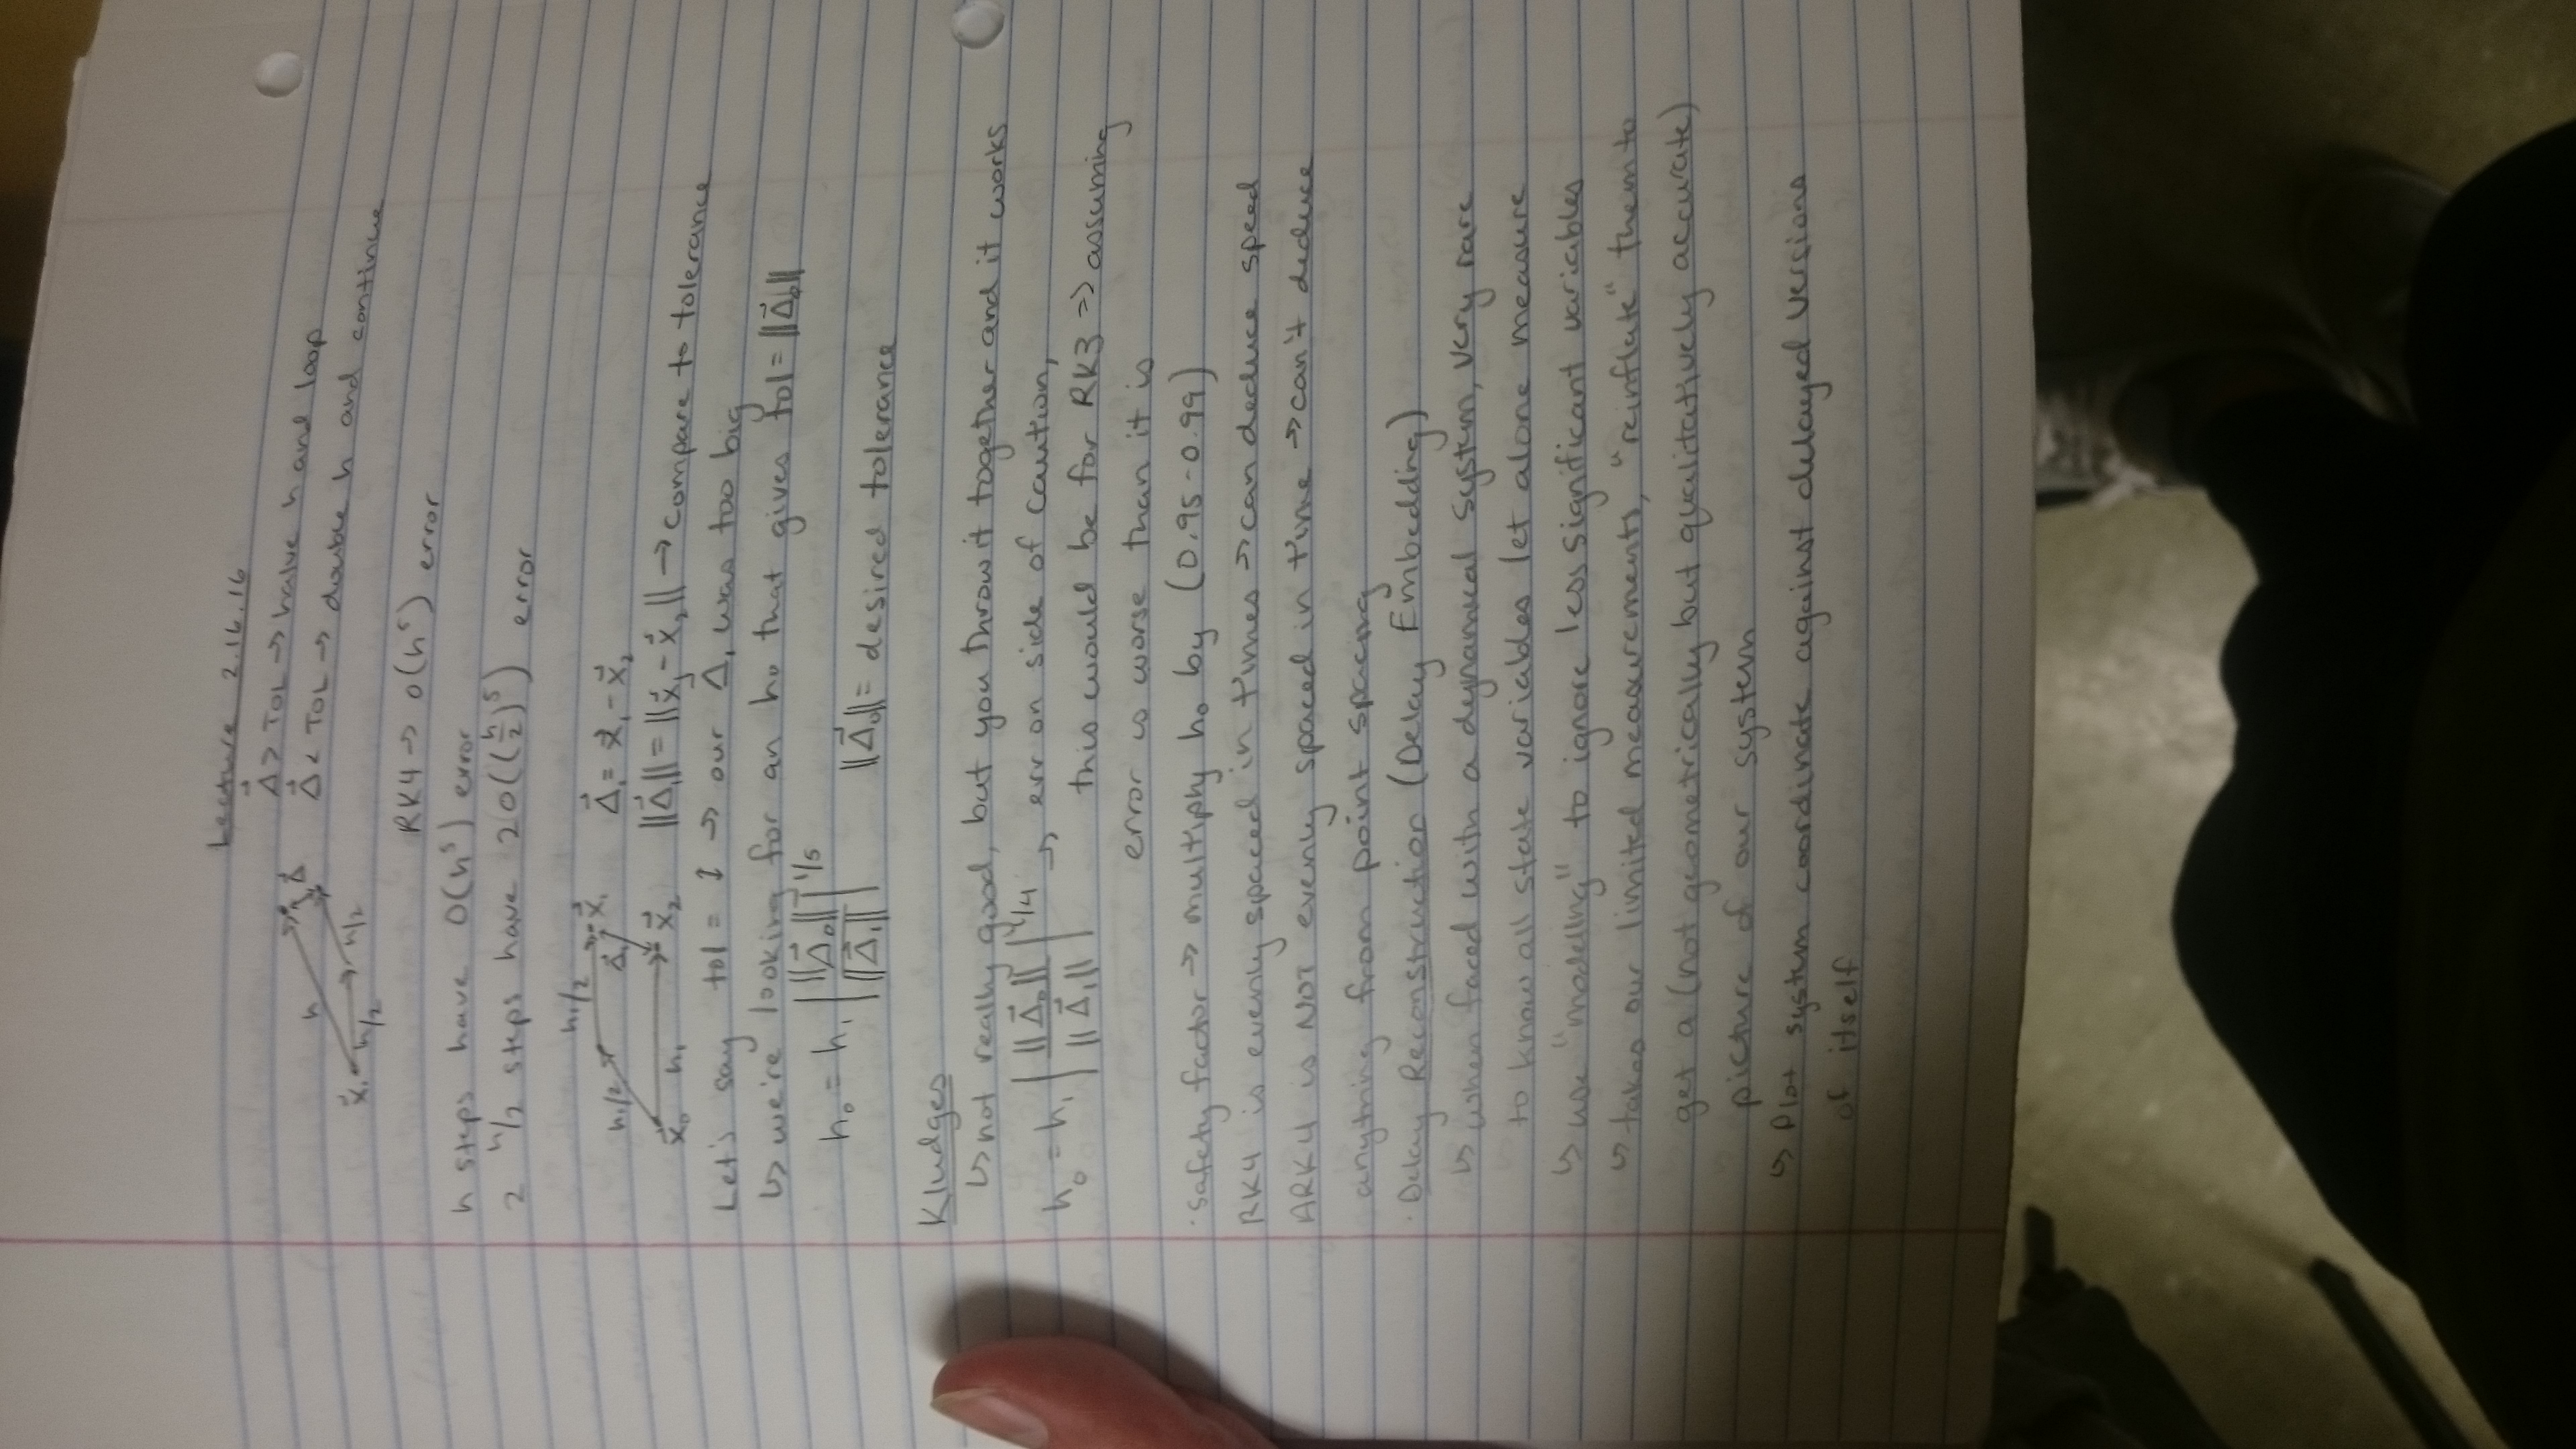 Lecture 2.16.16
Δ⃗ > TOL → halve h and loop
h Δ⃗
Δ⃗ < TOL → double h and continue
x⃗₁ h/2 h/2
RK4 → O(h⁵) error
h steps have O(h⁵) error
2 h/2 steps have 2O((h/2)⁵) error
h₁/2 h₁/2 x⃗₁
Δ⃗₁ Δ⃗₁ = x⃗₁ - x⃗₂
x⃗₀ h₁ x⃗₂ ||Δ⃗₁|| = ||x⃗₁ - x⃗₂|| → compare to tolerance
Let's say tol = 1 → our Δ₁ was too big
↳ we're looking for an h₀ that gives tol = ||Δ⃗₀||
h₀ = h₁ | ||Δ⃗₀|| / ||Δ⃗₁|| |^1/5
||Δ⃗₀|| = desired tolerance
Kludges
↳ not really good, but you throw it together and it works
h₀ = h₁ | ||Δ⃗₀|| / ||Δ⃗₁|| |^1/4 → err on side of caution,
this would be for RK3 => assuming
error is worse than it is
· safety factor → multiply h₀ by (0.95-0.99)
RK4 is evenly spaced in times → can deduce speed
ARK4 is NOT evenly spaced in time → can't deduce
anything from point spacing
· Delay Reconstruction (Delay Embedding)
↳ when faced with a dynamical system, very rare
to know all state variables let alone measure
↳ use "modeling" to ignore less significant variables
↳ takes our limited measurements, "reinflate" them to
get a (not geometrically but qualitatively accurate)
picture of our system
↳ Plot system coordinate against delayed versions
of itself